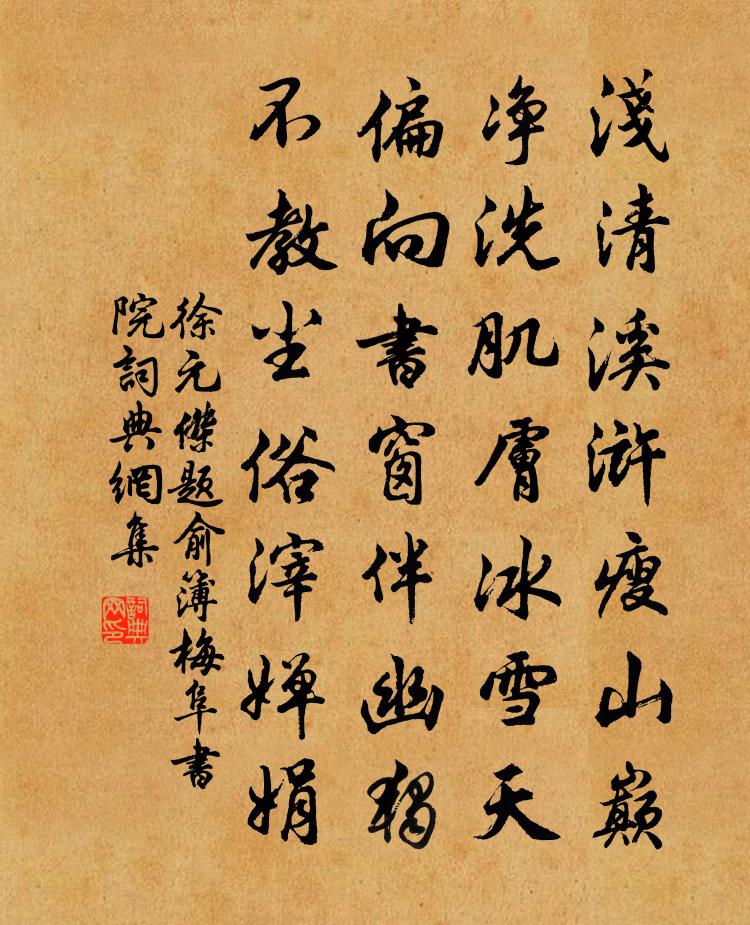 淺清溪滸瘦山巔
净洗肌膚冰雪天
偏向書窗伴幽獨
不教尘俗滓嬋娟
徐元傑题俞簿梅阜書
院詞典網集
詞典
网印